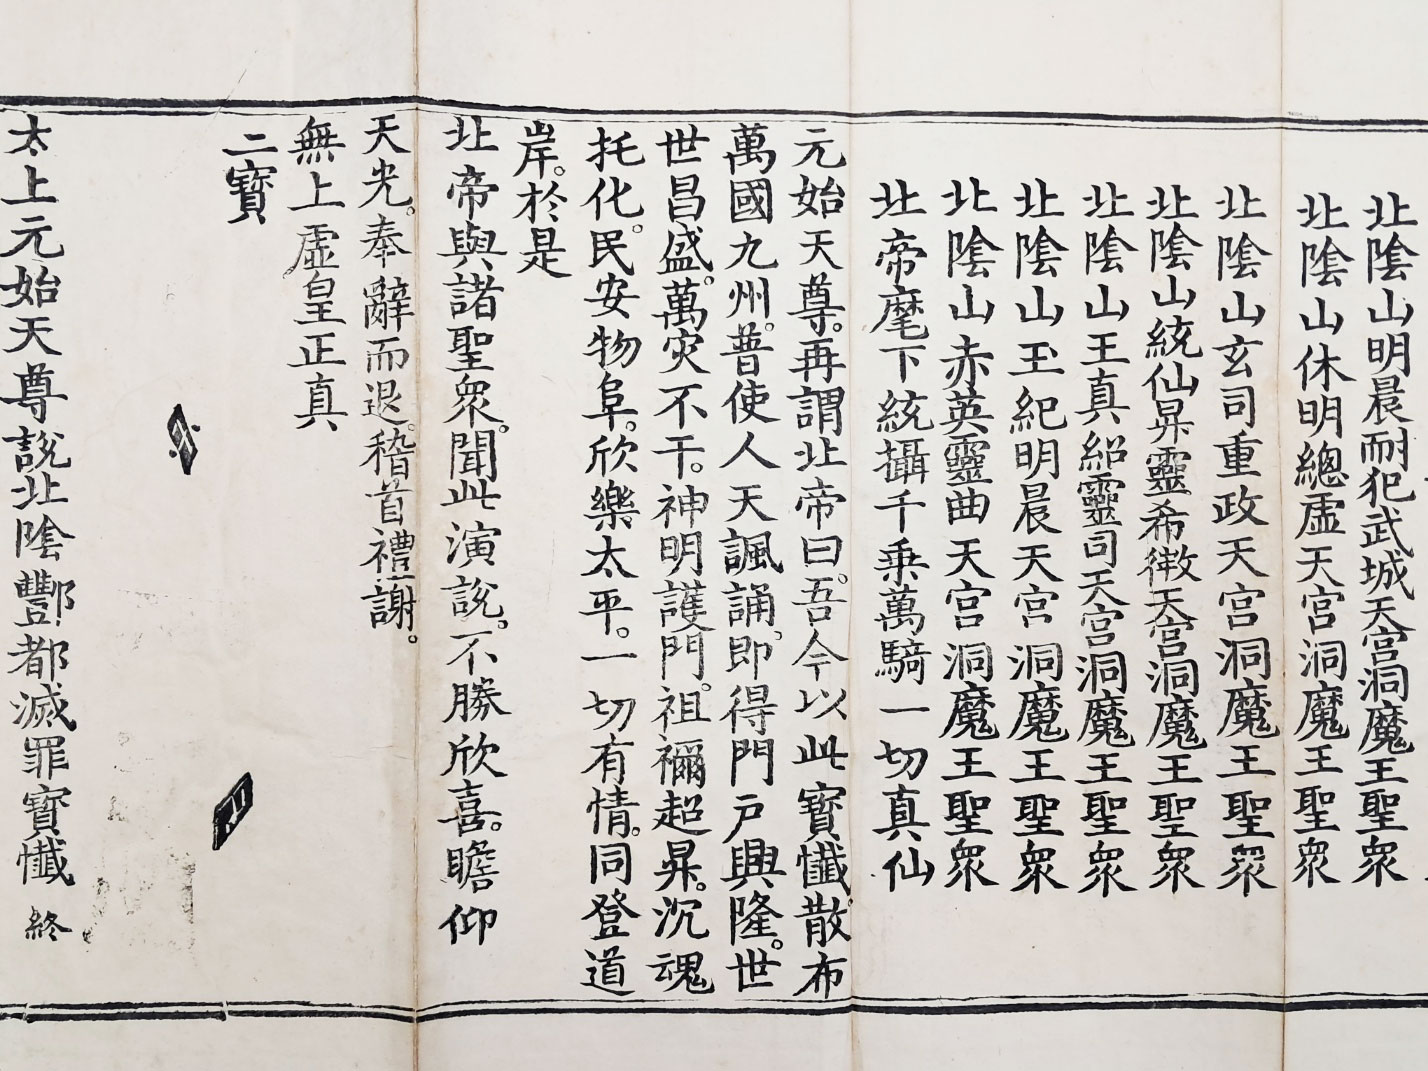 北陰山明晨耐犯武城天宮洞魔王聖衆
北陰山休明總虛天宮洞魔王聖衆
北陰山玄司重政天宮洞魔王聖衆
北陰山統仙昇靈希徴天宮洞魔王聖衆
北陰山王真紹靈司天宮洞魔王聖衆
北陰山玊紀明晨天宮洞魔王聖衆
北陰山赤英靈曲天宮洞魔王聖衆
北帝麾下統攝千乗萬騎一切真仙
元始天尊。再謂北帝曰。吾今以此寶懺。散布
萬國九州。普使人天諷誦。即得門戸興隆。世
世昌盛。萬灾不干。神明護門。祖禰超昇。沉魂
托化。民安物阜。欣樂太平。一切有情。同登道
岸。於是
北帝與諸聖衆。聞此演說。不勝欣喜。瞻仰
天光。奉辭而退。稽首禮謝。
無上虛皇正真
二寶
太上元始天尊說北陰酆都滅罪寶懺 終